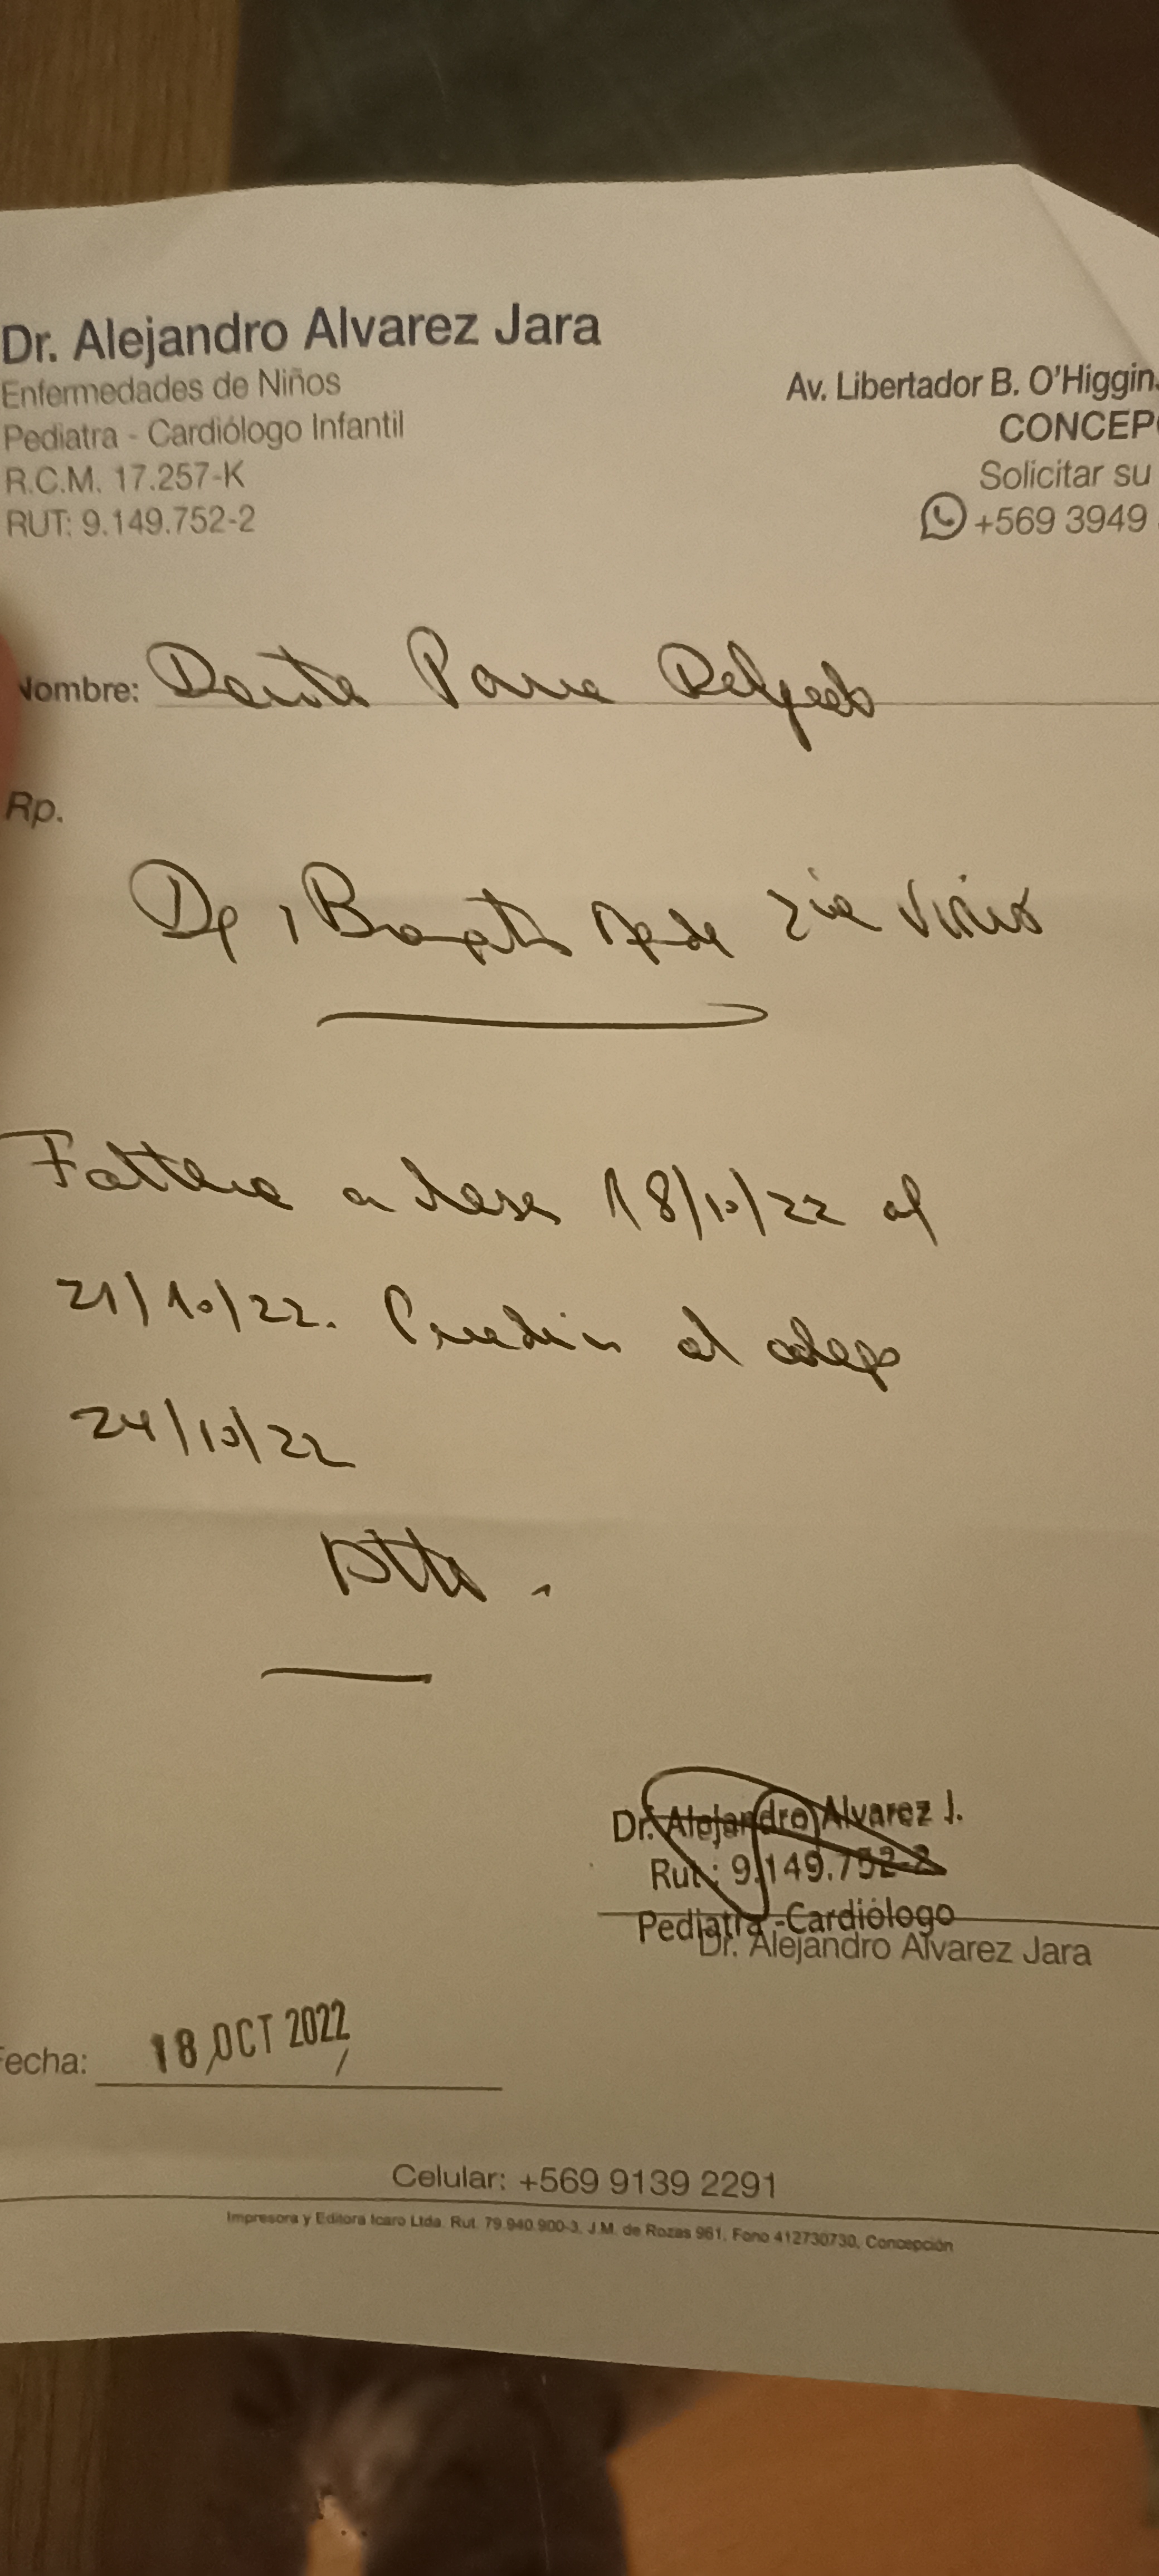 Dr. Alejandro Alvarez Jara
Enfermedades de Niños
Pediatra - Cardiólogo Infantil
R.C.M. 17.257-K
RUT: 9.149.752-2
Av. Libertador B. O'Higgin
CONCEP
Solicitar su
+569 3949
Nombre: Parra Delgado
Rp.
Dg
a clases 18/10/22 al
21/10/22. al colegio
24/10/22
Dr. Alejandro Alvarez J.
Rut.: 9.149.752-2
Pediatra -Cardiólogo
Dr. Alejandro Alvarez Jara
Fecha: 18 OCT 2022
Celular: +569 9139 2291
Impresora y Editora Icaro Ltda. Rut. 79.940.900-3, J.M. de Rozas 961, Fono 412730730, Concepción